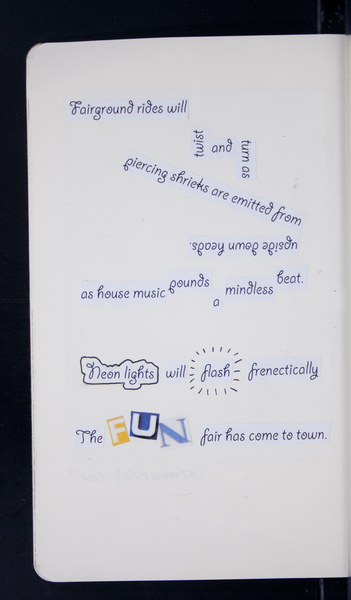 Fairground rides will
twist and turn as
piercing shrieks are emitted from
upside down heads.
as house music pounds a mindless beat.
Neon lights will flash frenectically
The FUN fair has come to town.